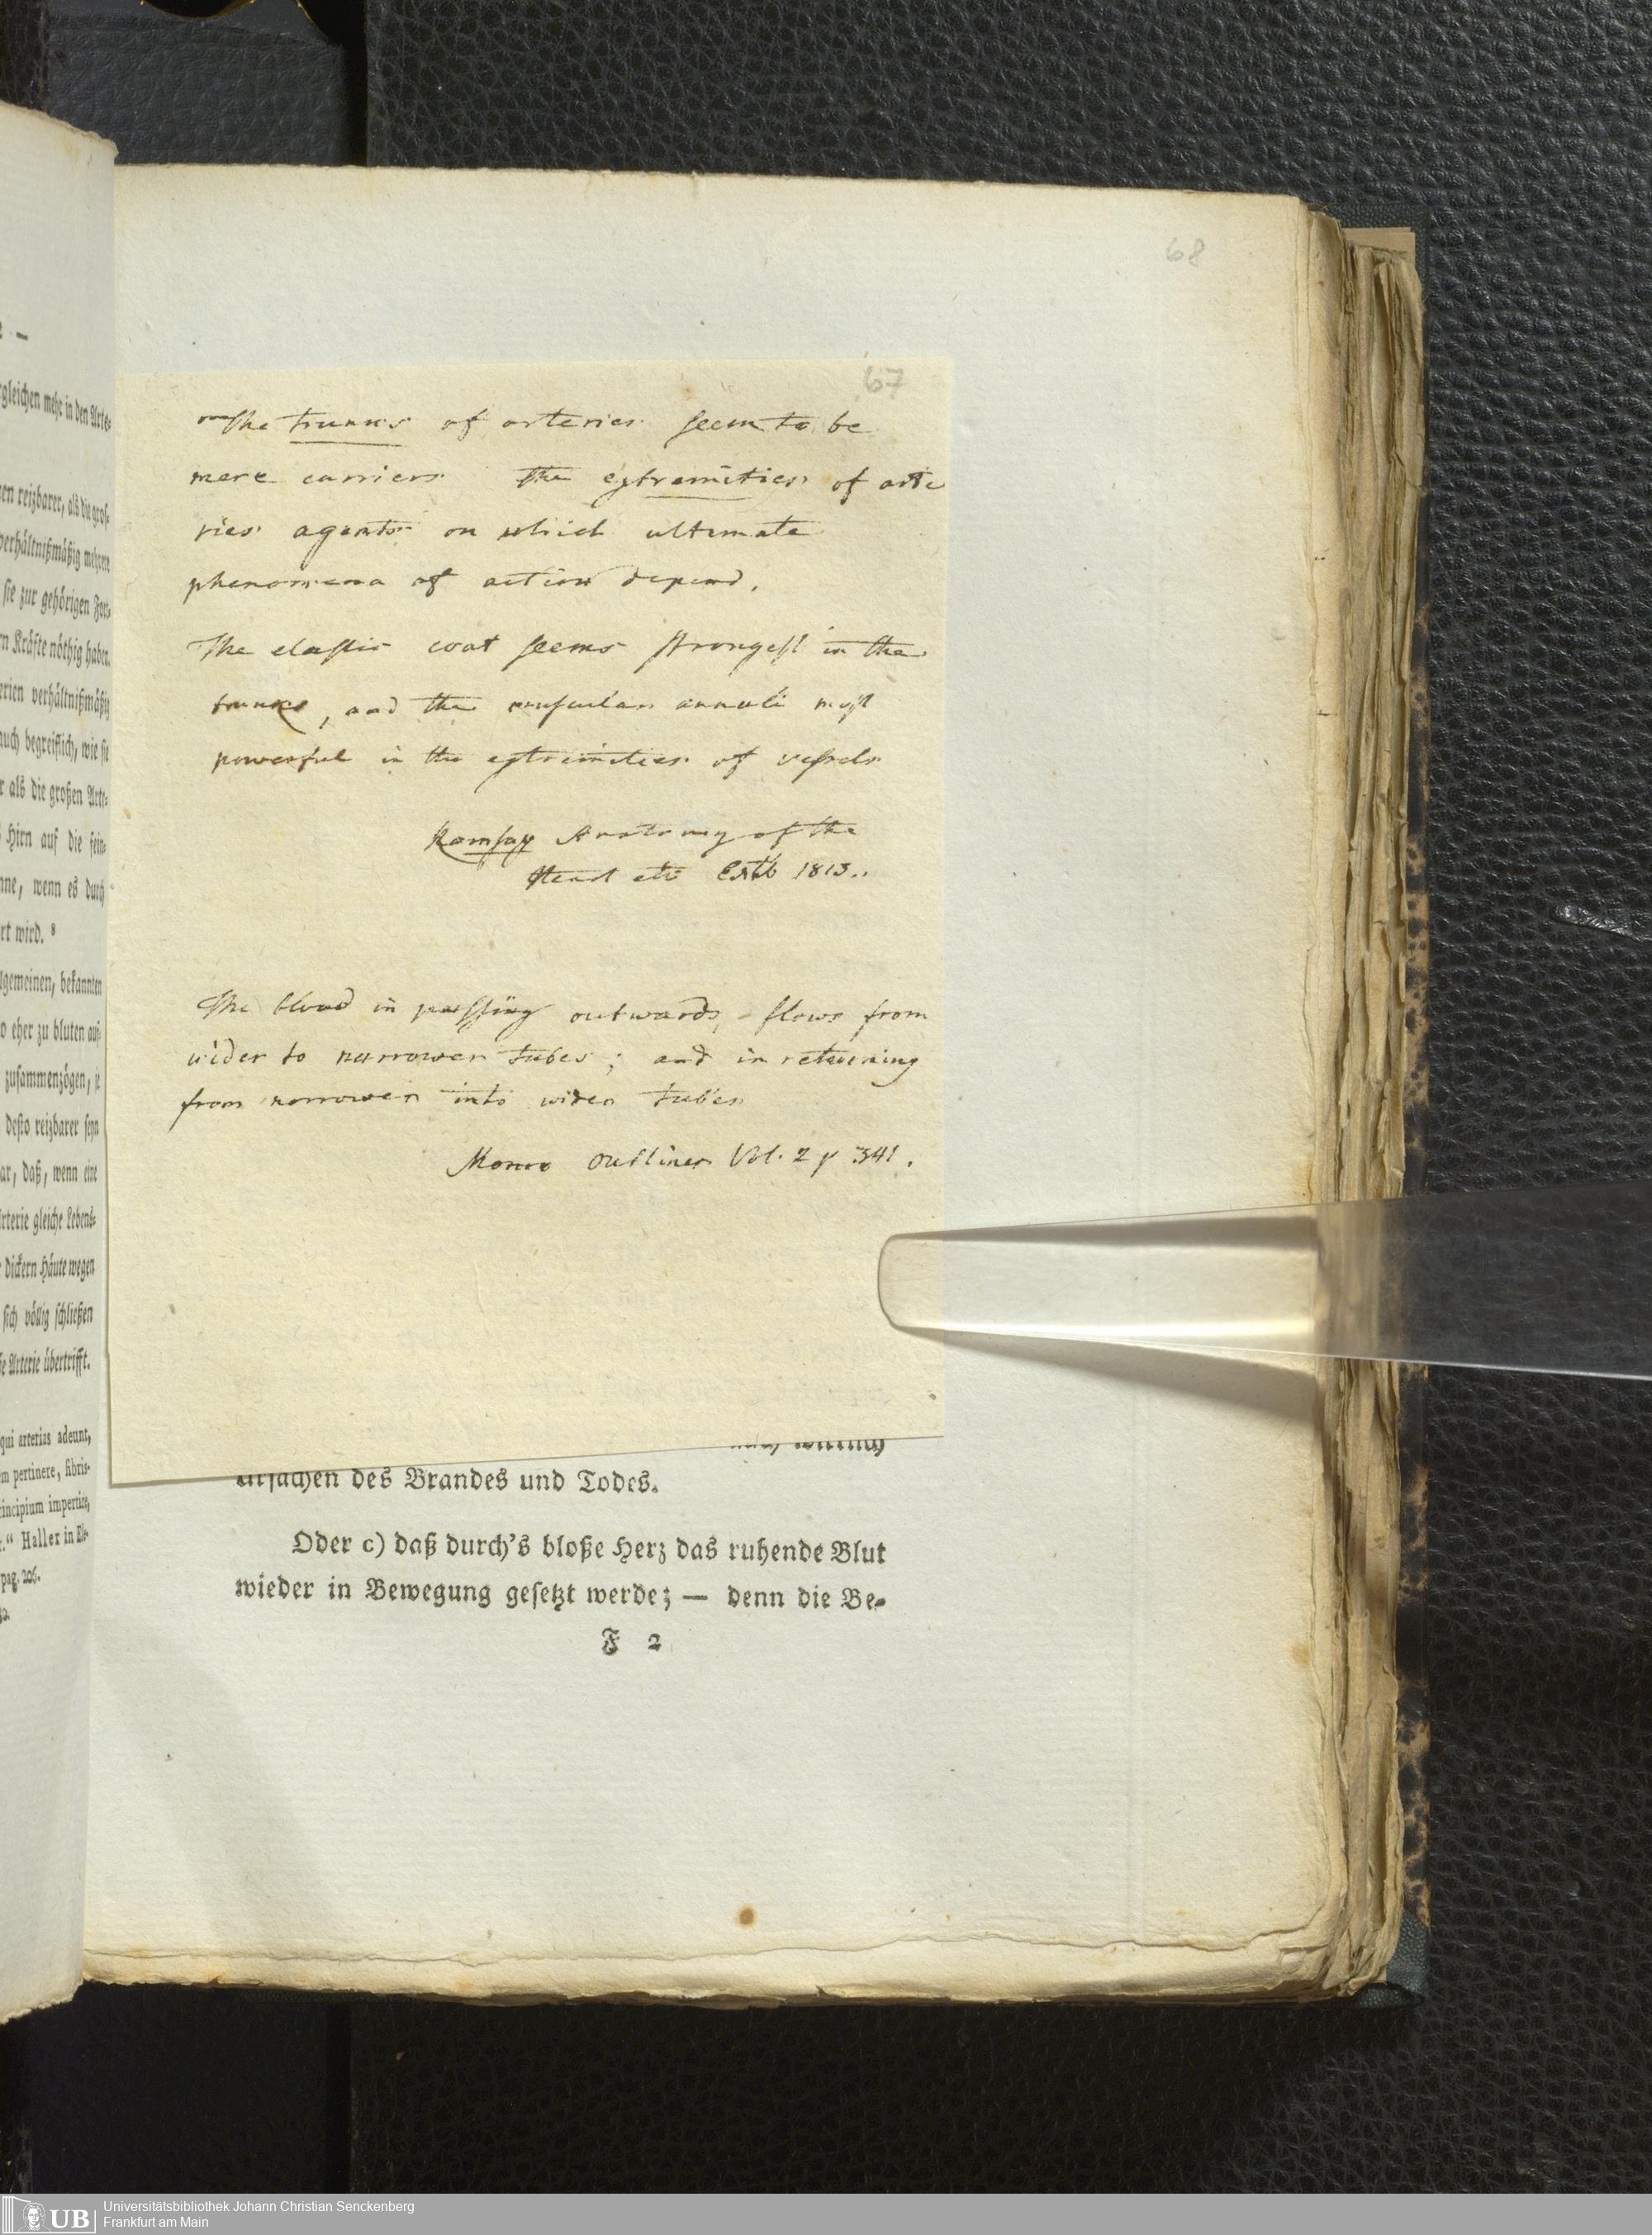 68
67
The trunks of arteries seem to be
mere carriers the extremities of arte
ries agents on which ultimate
phenomena of action depend.
The elastic coat seems strongest in the
trunks, and the muscular annuli most
powerful in the extremities of vessels
Ramsay Anatomy of the
Heart etc Edb 1813..
The blood in passing outwards, flows from
wider to narrower tubes; and in returning
from narrower into wider tubes
Monro Outlines Vol. 2 p 341.
Ursachen des Brandes und Todes.
Oder c) daß durch's bloße Herz das ruhende Blut
wieder in Bewegung gesetzt werde; — denn die Be-
F 2
gleichen mehr in den Arte-
en reizbarer, als die gros-
verhältnißmäßig mehrere
sie zur gehörigen For-
n Kräfte nöthig haben.
erien verhältnißmäßig
auch begreiflich, wie sie
r als die großen Arte-
Hirn auf die fein-
nne, wenn es durch
rt wird. 8
lgemeinen, bekannten
o eher zu bluten auf-
zusammenzögen, je
desto reizbarer seyn
ar, daß, wenn eine
rterie gleiche Lebens-
dickern Häute wegen
sich völlig schließen
e Arterie übertrifft.
qui arterias adeunt,
m pertinere, fibris-
rincipium impertire,
." Haller in El-
pag. 206.
UB Universitätsbibliothek Johann Christian Senckenberg
Frankfurt am Main